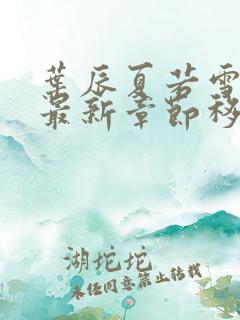 葉辰夏若雪
最新章節移
湖坨坨
未经同意禁止转载